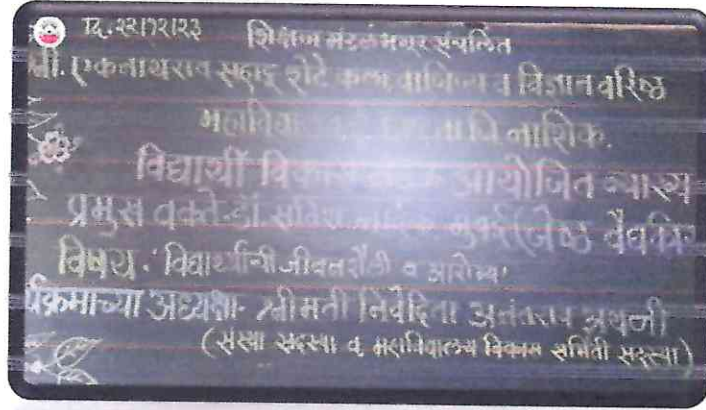 दि. २२/१२/२३
शिक्षण मंडळ भगूर संचलित
श्री. एकनाथराव सहादू शेटे कला, वाणिज्य व विज्ञान वरिष्ठ
जि. नाशिक.
विद्यार्थी विकास आयोजित व्याख्य
प्रमुख वक्ते - डॉ. मुंबई (जेष्ठ वैद्यकिय
विषय - 'विद्यार्थ्यांची जीवनशैली व आरोग्य'
र्यक्रमाच्या अध्यक्षा - श्रीमती निवेदिता अनंतराव
(संस्था सदस्या व महाविद्यालय विकास समिती सदस्या)